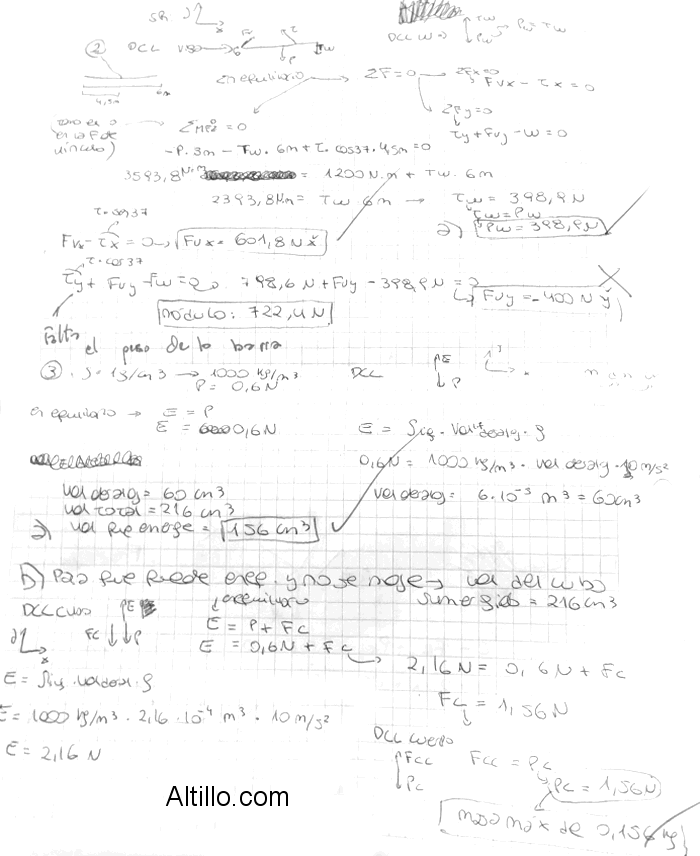 SR: y x
DCL W → Tw Pw Pw = Tw
② DCL VIGA → Fv τ P Tw
4,5m 6m
En equilibrio → ΣF=0 → ΣFx=0 Fvx - τx = 0
ΣFy=0
τy + Fvy - W = 0
ΣM = 0
en la F de
vínculo)
-P. 3m - Tw. 6m + τ. cos37. 4,5m = 0
3593,8 N.m = 1200 N.m + Tw. 6m
2393,8 Nm = Tw 6m → Tw = 398,9 N
Tw = Pw
a) Pw = 398,9 N
τ. cos37
Fvx - τx = 0 → Fvx = 601,8 N x̌
τ. cos37
τy + Fvy - Fw = 0 798,6 N + Fvy - 398,9 N = 0
Fvy = -400 N y̌
módulo: 722,4 N
Falta
el peso de la barra
③ δ = 1g/cm³ → 1000 kg/m³ DCL E P
P = 0,6 N
en equilibrio → E = P
E = 0,6 N
E = δliq. Vol desalg. g
0,6 N = 1000 kg/m³ . vol desalg . 10 m/s²
vol desalg = 60 cm³ vol desalg = 6.10⁻⁵ m³ = 60cm³
vol total = 216 cm³
a) vol que emerge = 156 cm³
b) Para que quede en eq. y no se moje → vol del cubo
sumergido = 216 cm³
DCL CUBO E Fc P
en equilibrio
E = P + Fc
E = 0,6 N + Fc
2,16 N = 0,6 N + Fc
Fc = 1,56 N
y x
E = δliq . vol desal . g
E = 1000 kg/m³ . 2,16 . 10⁻⁴ m³ . 10 m/s²
E = 2,16 N
DCL cuerpo
Fcc Pc Fcc = Pc
Pc = 1,56 N
masa máx de 0,156 kg
Altillo.com